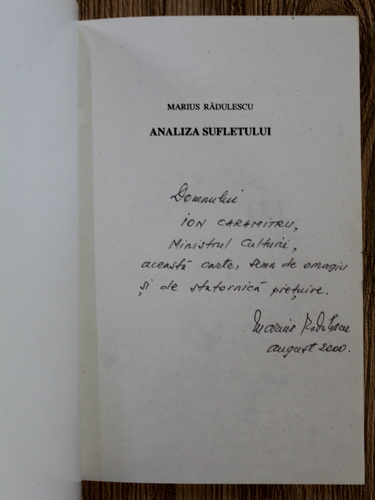 MARIUS RĂDULESCU
ANALIZA SUFLETULUI
Domnului
ION CARAMITRU,
Ministrul Culturii,
această carte, semn de omagiu
și de statornică prețuire.
Marius Rădulescu
august 2000.